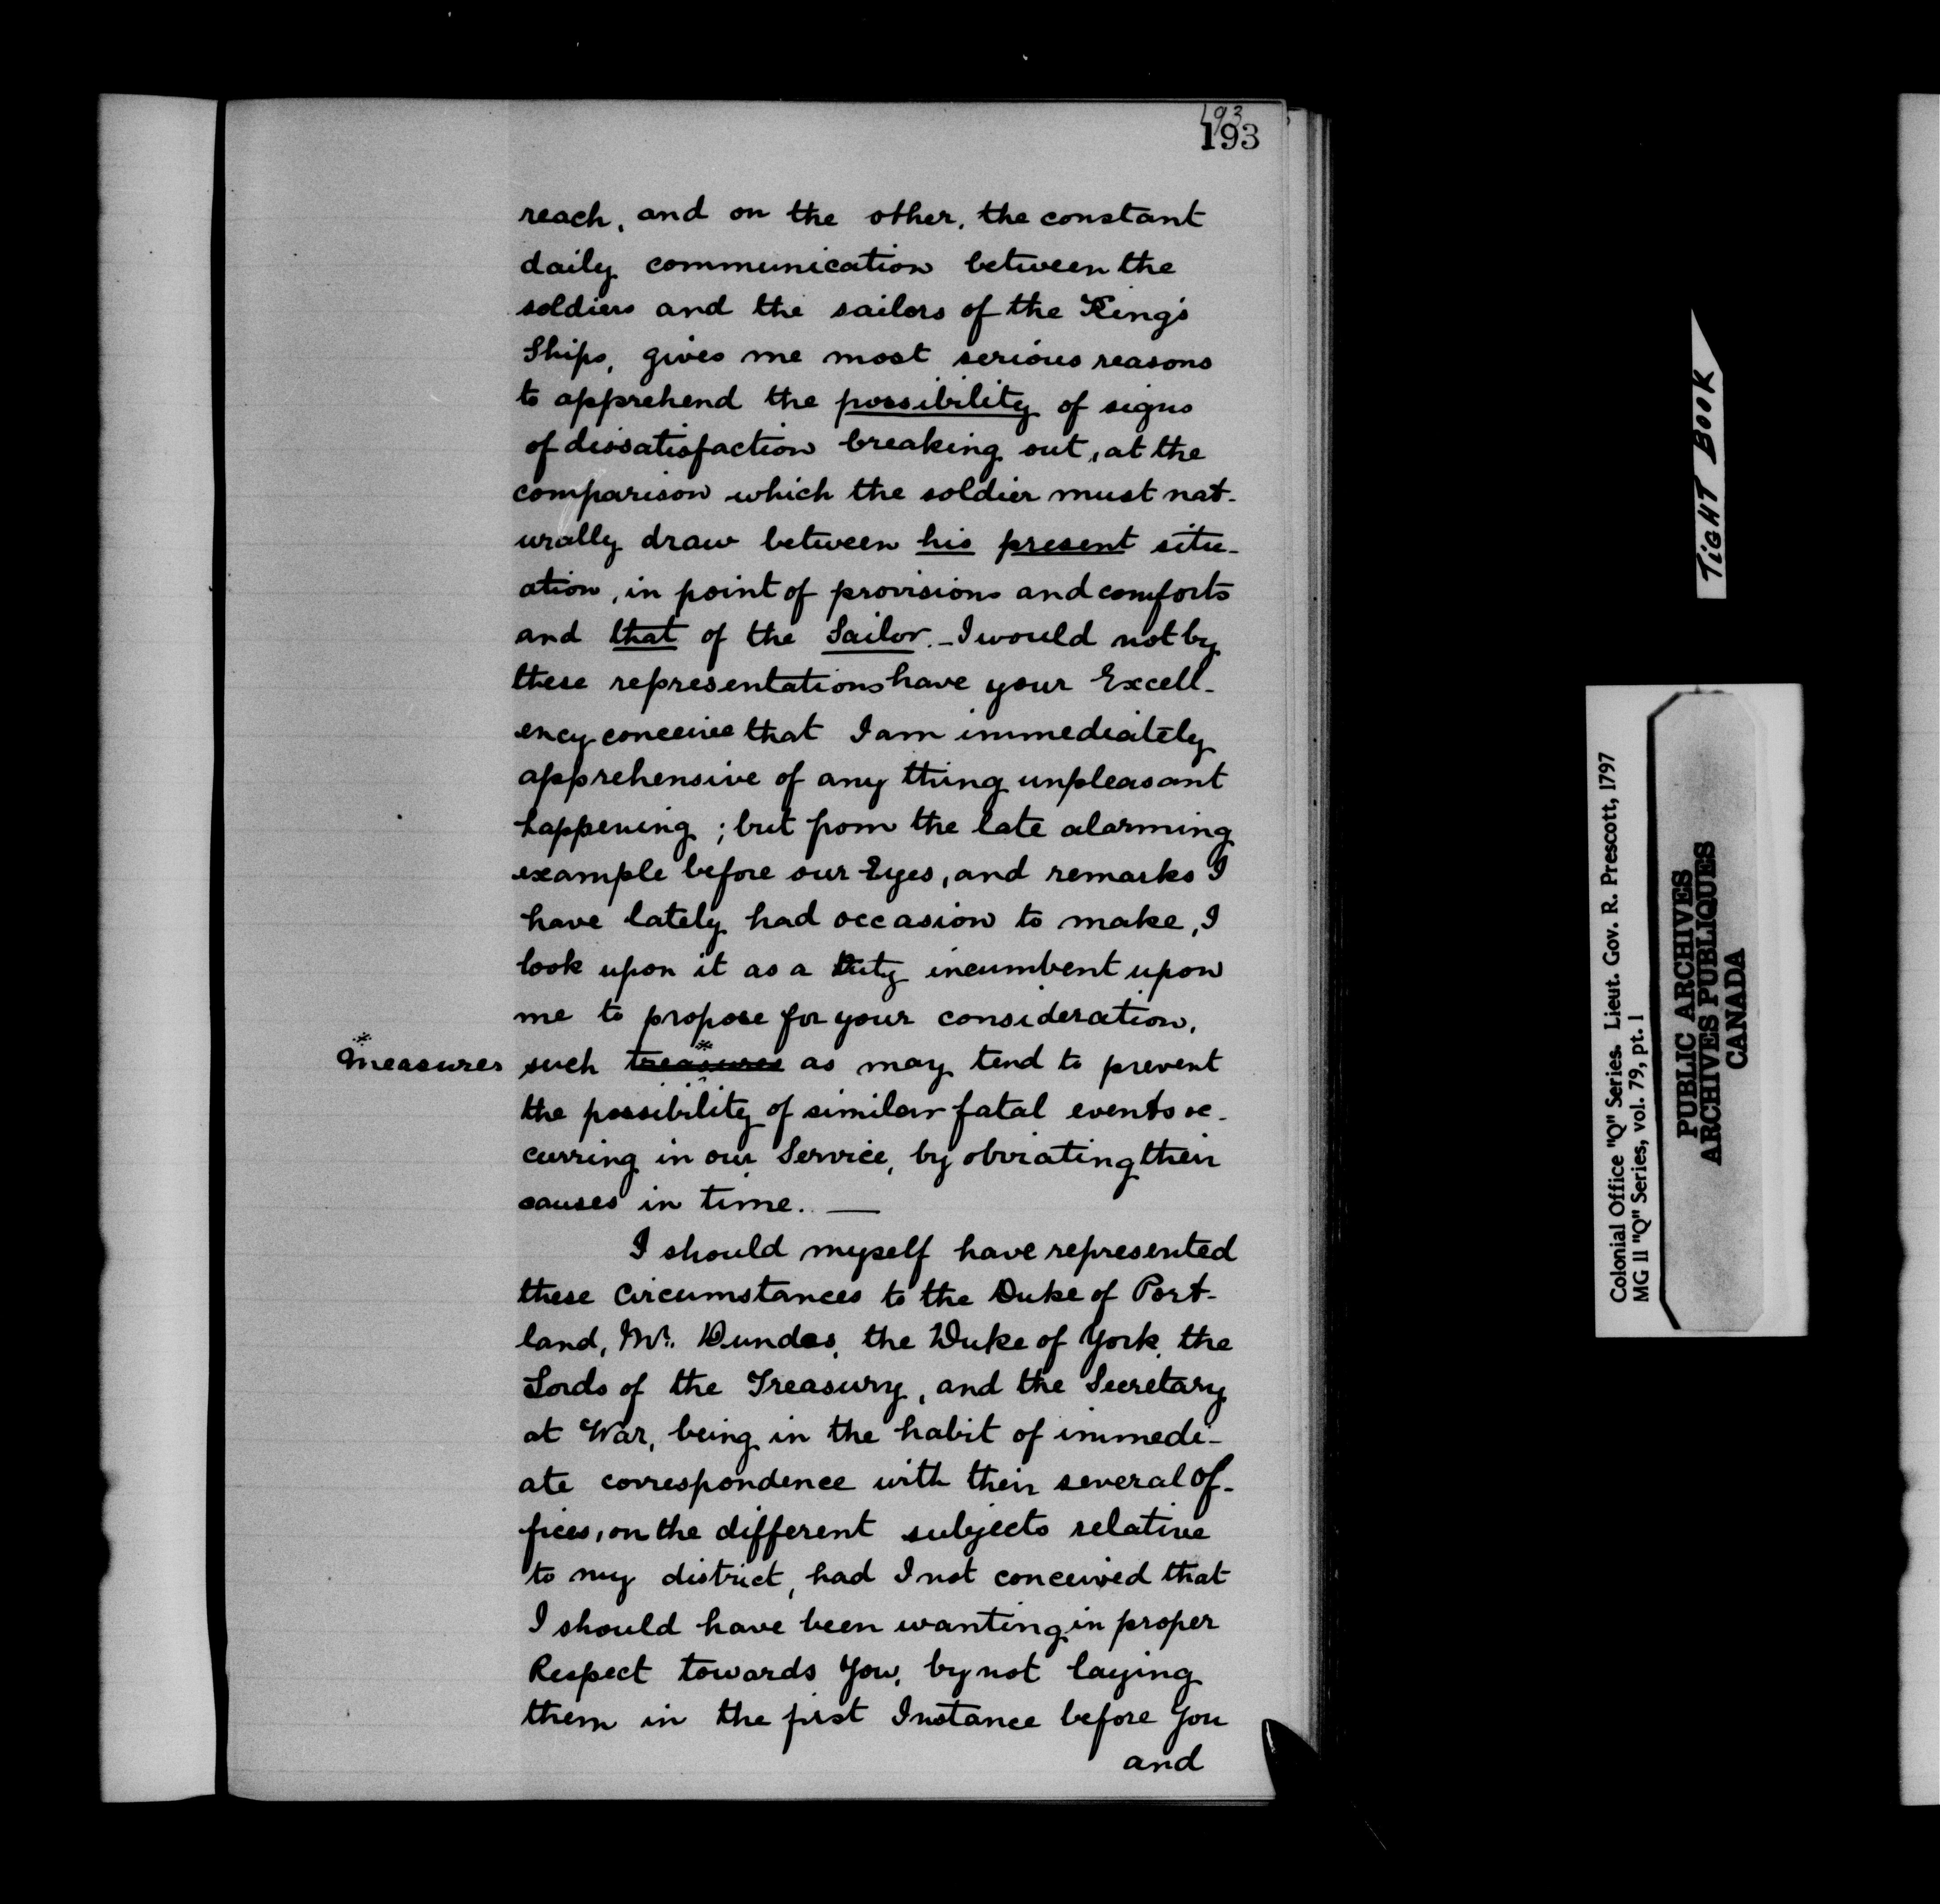 193
193
reach, and on the other, the constant
daily communication between the
soldiers and the sailors of the King's
Ships, gives me most serious reasons
to apprehend the possibility of signs
of dissatisfaction breaking out, at the
comparison which the soldier must nat-
urally draw between his present situ-
ation, in point of provisions and comforts
and that of the Sailor. - I would not by
these representations have your Excell-
ency conceive that I am immediately
apprehensive of any thing unpleasant
happening; but from the late alarming
example before our Eyes, and remarks I
have lately had occasion to make, I
look upon it as a Duty incumbent upon
me to propose for your consideration,
* measures such treasures * as may tend to prevent
the possibility of similar fatal events oc-
curring in our Service, by obviating their
causes in time. —
I should myself have represented
these Circumstances to the Duke of Port-
land, Mr. Dundas, the Duke of York, the
Lords of the Treasury, and the Secretary
at War, being in the habit of immedi-
ate correspondence with their several Of-
fices, on the different subjects relative
to my district, had I not conceived that
I should have been wanting in proper
Respect towards You, by not laying
them in the first Instance before You
and
TIGHT BOOK
Colonial Office "Q" Series. Lieut. Gov. R. Prescott, 1797
MG 11 "Q" Series, vol. 79, pt. 1
PUBLIC ARCHIVES
ARCHIVES PUBLIQUES
CANADA